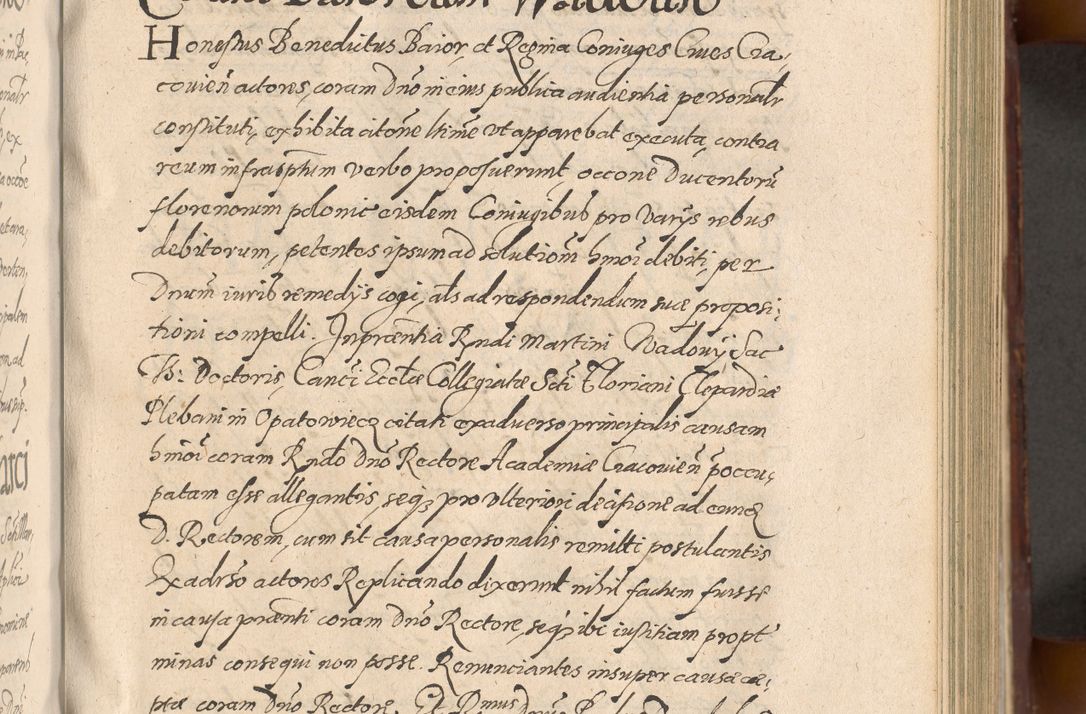 Honestus Benedictus Baior, et Regina Coniuges Cives Cra,
covień actores, coram Dno in eius publica audientia personalr
constituti, exhibita citone ltime ut apparebat executa, contra
reum infrascptum verbo proposuerunt, occone Ducentorū
florenorum polonic eisdem Coniugibus pro varys rebus
debitorum, petentes ipsum ad solutiom hmoi debiti, per
Dnum iurib remedys cogi, als ad respondendum suæ proposi,
tioni compelli. In prætia Rndi Martini Wadowÿ Sac
Th: Doctoris, Canci Ecclæ Collegiatæ Scti Floriani Clepardiæ
Plebani in Opatowiecz citati ex adverso principalis causam
hmoi coram Rndo Dno Rectore Academiæ Cracovień poccu,
patam esse allegantis, seq3 pro ulteriori decisione ad eundē
D. Rectorem, cum sit causa personalis remitti postulantis
Ex adrso actores Replicando dixerunt nihil factum fuisse
in causa prænti coram Dno Rectore, seq3 ibi iustitiam propt
minas consequi non posse. Renunciantes insuper causæ cæ,
ptæ coram Dno Rectore. Et